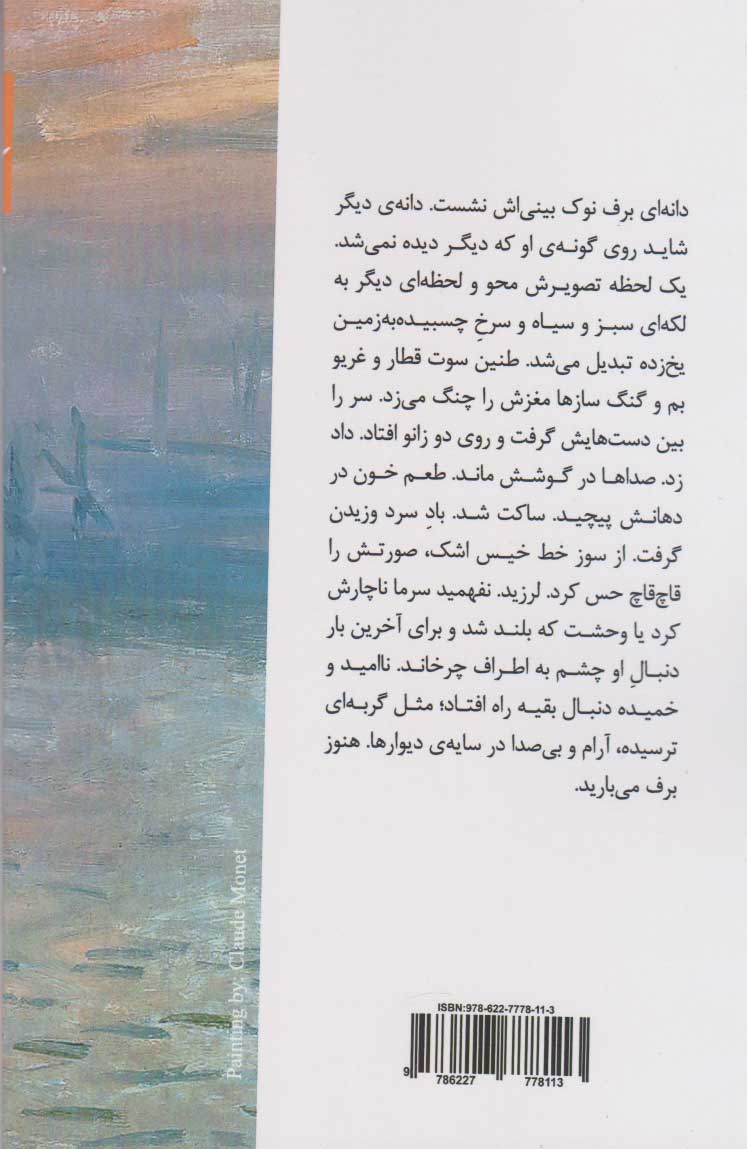 دانه‌ای برف نوک بینی‌اش نشست. دانه‌ی دیگر
شاید روی گونه‌ی او که دیگر دیده نمی‌شد.
یک لحظه تصویرش محو و لحظه‌ای دیگر به
لکه‌ای سبز و سیاه و سرخِ چسبیده‌به‌زمین
یخ‌زده تبدیل می‌شد. طنین سوت قطار و غریو
بم و گنگ سازها مغزش را چنگ می‌زد. سر را
بین دست‌هایش گرفت و روی دو زانو افتاد. داد
زد. صداها در گوشش ماند. طعم خون در
دهانش پیچید. ساکت شد. بادِ سرد وزیدن
گرفت. از سوز خط خیس اشک، صورتش را
قاچ‌قاچ حس کرد. لرزید. نفهمید سرما ناچارش
کرد یا وحشت که بلند شد و برای آخرین بار
دنبالِ او چشم به اطراف چرخاند. ناامید و
خمیده دنبال بقیه راه افتاد؛ مثل گربه‌ای
ترسیده، آرام و بی‌صدا در سایه‌ی دیوارها. هنوز
برف می‌بارید.
Painting by: Claude Monet
ISBN:978-622-7778-11-3
9 786227 778113